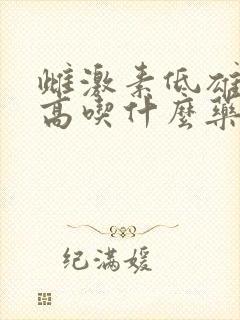 雌激素低雄
高喫什麼藥
纪满媛